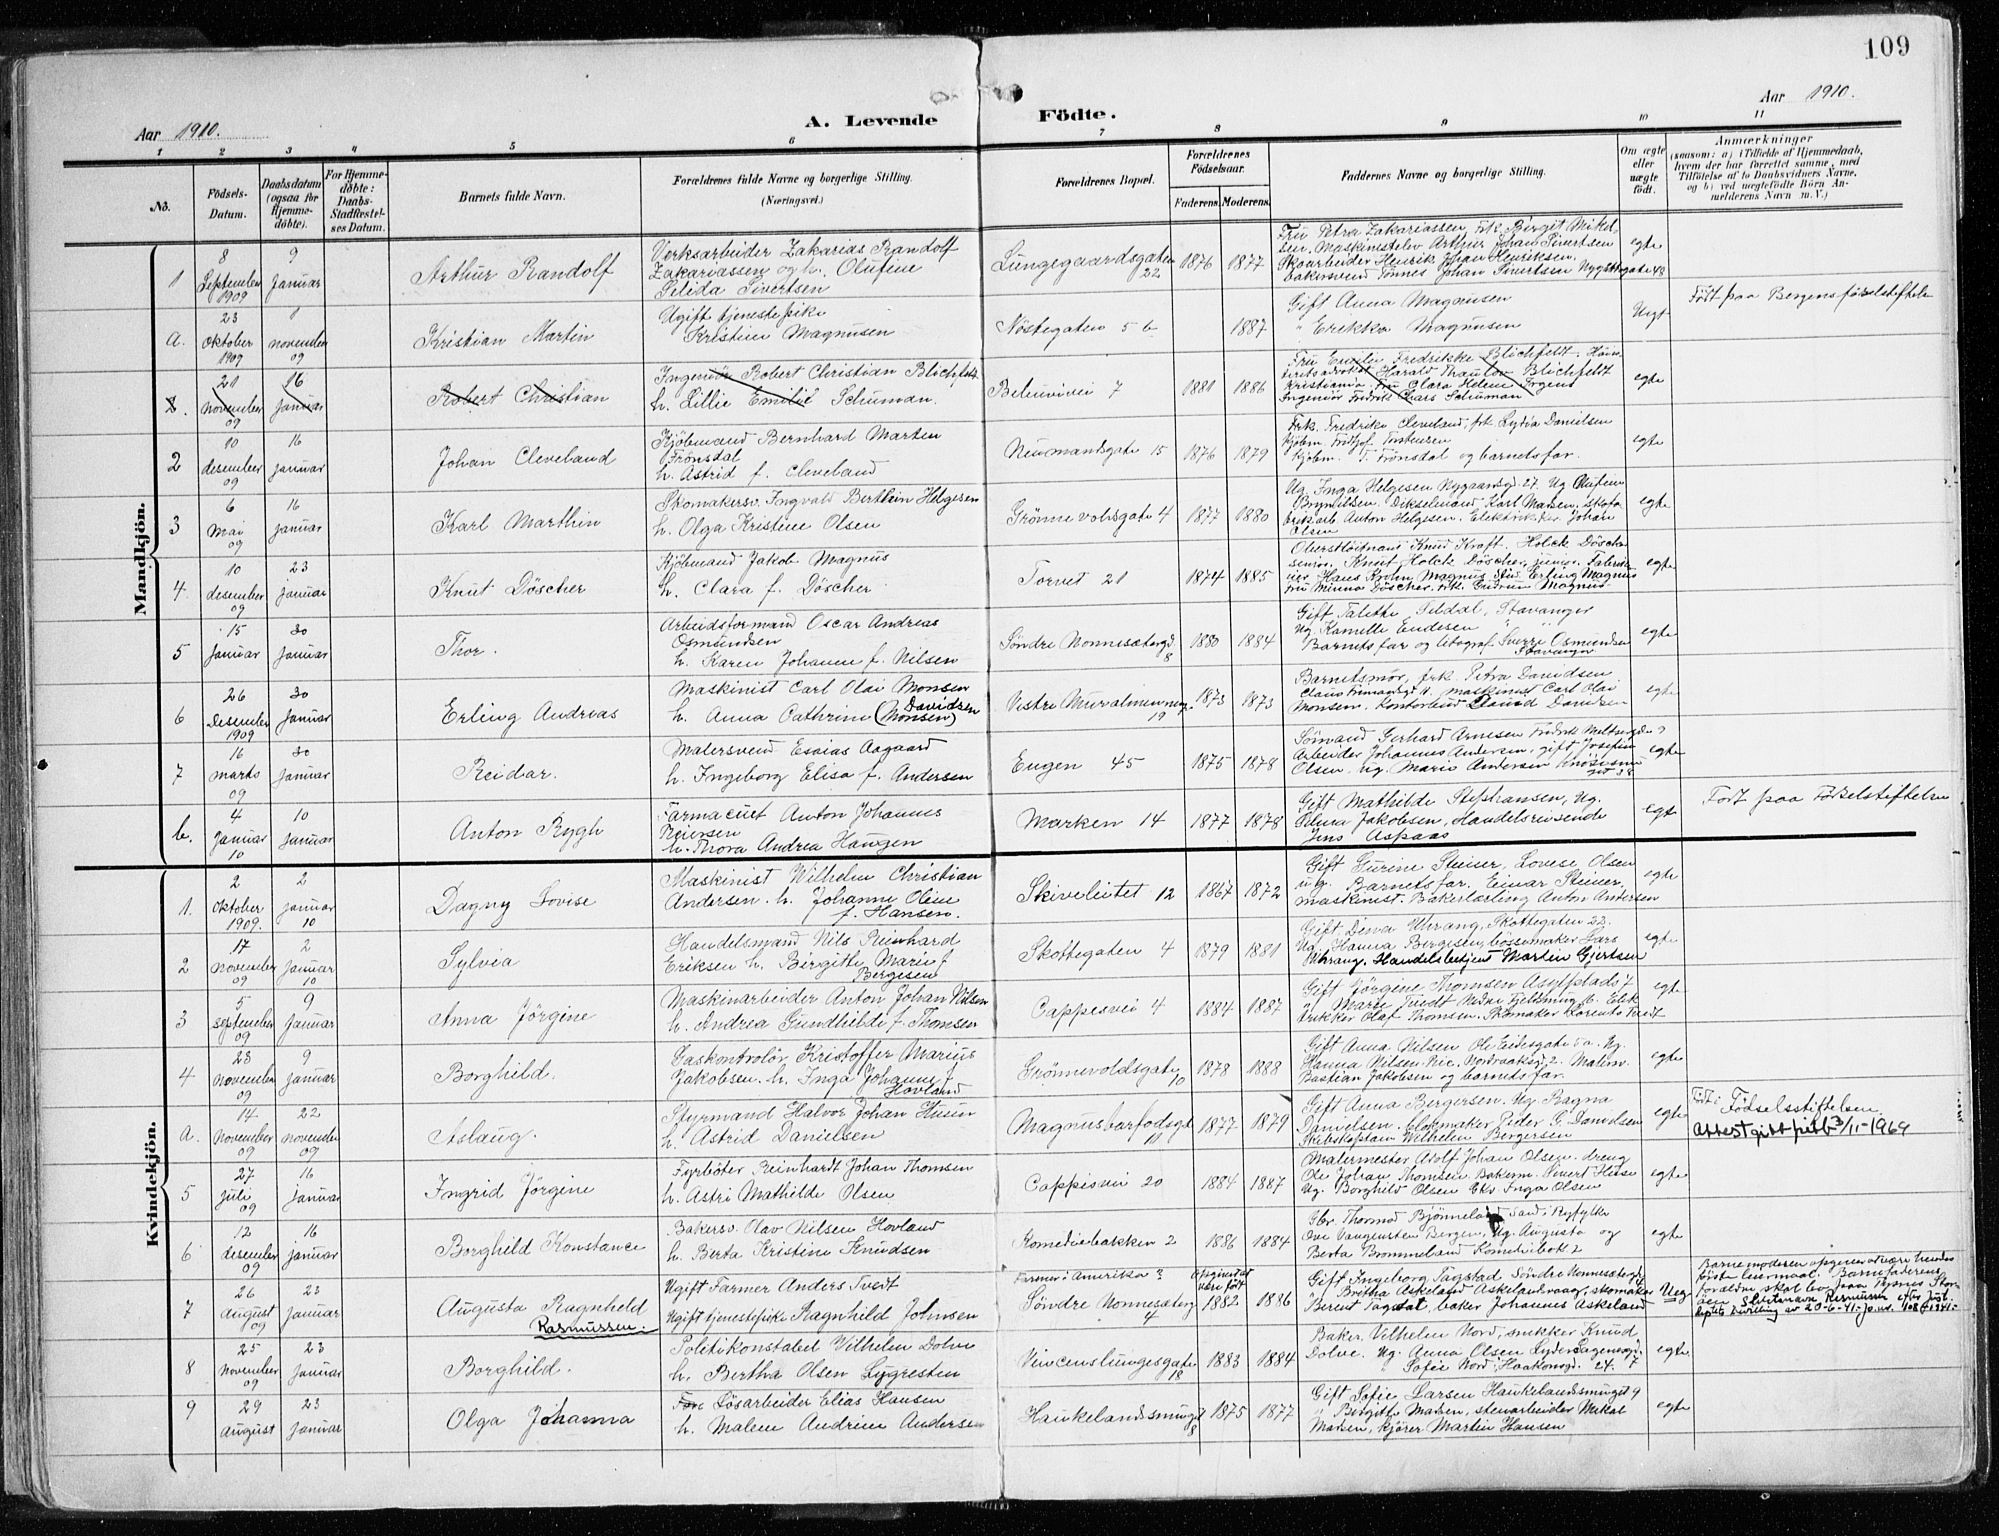 109
Aar 1910.
A. Levende Födte.
Aar 1910.
1 2 3 4 5 6 7 8 9 10 11
No.
Födsels-Datum.
Daabsdatum (ogsaa for Hjemme-döbte).
For Hjemme-döbte: Daabs-Stadfæstel-ses Datum.
Barnets fulde Navn.
Forældrenes fulde Navne og borgerlige Stilling.
(Næringsvei.)
Forældrenes Bopæl.
Forældrenes Födselsaar.
Faderens. Moderens.
Faddernes Navne og borgerlige Stilling.
Om ægte eller uægte födt.
Anmærkninger
(saasom: a) i Tilfælde af Hjemmedaab, hvem der har forrettet samme, med Tilföielse af to Daabsvidners Navne, og b) ved uægtefödte Börn An-melderens Navn m. V.)
Mandkjön.
1
8 September 1909
9 Januar
Arthur Randolf
Verksarbeider Zakarias Randolf
Zakariassen og h. Olufine
Selida Sivertsen
Lungegaardsgaten 22
1876 1877
Fru Petra Zakariassen, Frk. Birgit Mikel
sen. Maskinistelev Arthur Johan Sivertsen
Skoarbeider Henrik Johan Henriksen.
bakersvend Tönnes Johan Sivertsen Nygaardsgate 42
egte
a.
23 Oktober 1909
november 09
Kristian Martin
Ugift tjenestepike
Kristine Magnusen
Nöstegaten 5 b
1887
Gift Anna Magnusen
" Erikka Magnusen
Uegt
Födt paa Bergens födselstiftelse
2.
21 november 09
16 Januar
Robert Christian
Ingeniör Robert Christian Blichfeldt
h. Lillie Emilie Schuman.
Bellevuevei 7
1881 1886
Fru Emilie Fredrikke Blichfeldt. Höie-
steretsadvokat Harald Thaulow Blichfeldt
Kristiania. Fru Clara Helene Irgens
Ingeniör Fredrik Lars Schuman
egte
2
10 desember 09
16 januar
Johan Cleveland
Kjöbmand Bernhard Marten
Frönsdal
h. Astrid f. Cleveland
Neumandsgate 15
1876 1879
Frk. Fredrikke Cleveland, frk. Lydia Danielsen
Kjöbm. Fridtjof Torstensen
Kjöbm. T. Frönsdal og barnets far.
egte
3
6 mai 09
16 januar
Karl Marthin
Skomakersv. Ingvald Berthin Helgesen
h. Olga Kristine Olsen
Grönnevoldsgate 4
1877 1880
Ug. Inga Helgesen Nygaardsgd. 27. Ug Olufine
Brynildsen. Dikselmand Karl Madsen, skofa
brikarb. Anton Helgesen. Elektriker Johan
Olsen
egte
4.
10 desember 09
23 januar
Knut Döscher
Kjöbmand Jakob Magnus
h. Clara f. Döscher
Torvet 21
1874 1885
Oberstlöitnant Knud Kraft. Holck Döscher
senior. Knut Holck Döscher, junior. Fabrik
eier Hans Krohn Magnus Stud. Erling Magnus
fru Minna Döscher. Frk. Gudrun Magnus
egte
5
15 Januar
30 Januar
Thor.
Arbeidsformand Oscar Andreas
Osmundsen
h. Karen Johanne f. Nilsen
Söndre Nonnesætergd. 8
1880 1884
Gift Talette Seldal, Stavanger
Ug. Kamelle Endesen " "
Barnets far og litograf Sverre Osmundsen
Stavanger
egte
6
26 Desember 1909
30 Januar
Erling Andreas
Maskinist Carl Olai Monsen
h. Anna Cathrine (Monsen) Davidsen
Vestre Muralmenning 19
1873 1873
Barnets mor, frk. Petra Davidsen
Claus Frimandsgd 11. maskinist Carl Olai
Monsen. Kontorbud David Davidsen
egte
7
16 marts 09
30 Januar
Reidar.
Malersvend Esaias Aagaard
h. Ingeborg Elisa f. Andersen
Engen 45
1875 1878
Sömand Gerhard Arnesen Fredrik Meltzersgd. 7
Arbeider Johannes Andersen, gift Josefine
Olsen. Ug. Marie Andersen Knösesmu
get 38
egte
b.
4 Januar 10
10 Januar
Anton Rygh
Farmaceut Anton Johannes
Beiersen
h. Thora Andrea Haugen
Marken 14
1877 1878
Gift Mathilde Stephansen, Ug.
Petra Jakobsen, Handelsreisende
Jens Aspaas
egte
Födt paa Födselstiftelsen
Kvindekjön.
1.
2 Oktober 1909.
2 Januar 10
Dagny Lovise
Maskinist Wilhelm Christian
Andersen. h. Johanne Oline
f. Hansen.
Skiveleitet 12
1867 1872
Gift Gurine Steiner, Lovese Olsen
ug. Barnets far, Einar Steiner,
maskinist. Bakerlærling Anton Andersen
egte
2
17 november 09
2 Januar 10
Sylvia
Handelsmand Nils Reinhard
Eriksen h. Birgitte Marie f.
Bergesen
Skottegaten 4
1879 1881
Gift Dina Uhrang, Skottegaten 22.
Ug. Hanna Bergesen, bössemaker Lars
Uhrang, Handelsbetjent Martin Gjertsen
egte
3
5 september 09
9 Januar
Anna Jörgine
Maskinarbeider Anton Johan Nilsen
h. Andrea Gundhilde f. Thomsen
Cappesvei 4
1884 1887
Gift Jörgine Thomsen Asylplads 7
" Marie Tvedt Nedre Fjeldsmug 6. Elek
triker Olaf Thomsen. Skomaker Lorents Tvedt
egte
4
23 november 09
9 januar
Borghild.
Gaskontrolör Kristoffer Marius
Jakobsen. h. Inga Johanne f.
Hovland
Grönnevoldsgate 10
1878 1888
Gift Anna Nilsen Ole Eidesgate 5a. Ug.
Hanna Nilsen Nordraaksgd. 2. Malerm.
Bastian Jakobsen og barnets far.
egte
a.
14 November 09
22 november 09
Aslaug.
Styrmand Halvor Johan Husun
h. Astrid Danielsen
Magnusbarfodsgt 11
1877 1879
Gift Anna Bergersen. Ug. Ragna
Danielsen. blokmaker Peder G. Danielsen
Skibskaptein Wilhelm Bergersen
egte
Födt i Födselsstiftelsen.
Attest gitt 3/11-1969
5
27 juli 09
16 januar
Ingrid Jörgine
Fyrböter Reinhardt Johan Thomsen
h. Astri Mathilde Olsen
Cappesvei 20
1884 1887
Malermester Adolf Johan Olsen. dreng
Ole Johan Thomsen Bakerm. Sivert Huse
Ug. Borghild Olsen Eks. Inga Olsen
egte
6
12 desember 09
16 januar
Borghild Konstance
Bakersv. Olav Nilsen Hovland
h. Berta Kristine Knudsen
Komediebakken 2
1886 1884
Gbr. Thormod Bjönneland Sand i Ryfylke
Ove Vangensten Bergen, Ug. Augusta og
Berta Brommeland Komediebak 2
egte
7
26 August 09
23 Januar
Augusta Ragnhild
Rasmussen.
Ugift Farmer Anders Tvedt
Ugift tjenestepike Ragnhild Johnsen
Farmer i Amerika?
Söndre Nonnesæterg 4
Opgivet at være födt
1882 1886
Gift Ingeborg Tagstad Söndre Nonnesætergd 4
" Britha Askeland Askelandsvaag, skomaker
Berent Tagstad, baker Johannes Askeland
Ueg
Barnemoderen opgiver at være hendes
förste leiermaal. Barnefaderens
foreldre skal bo paa Tysnes Stor-
öen. Slektsnavn Rasmussen efter Just.
dep.ts bevilling av 20-6-41-p.nr. 108/1941-
8
25 november 09
23 Januar
Borghild.
Politikonstabel Wilhelm Dolve
h. Bertha Olsen Lygresten
Vincenslungesgate 18
1883 1884
Baker Vilhelm Nord, snekker Knud
Dolve. Ug. Anna Olsen Lyder Sagensgd. 7
Sofie Nord, Haakonsgd. 27.
egte
9
29 august
23 januar
Olga Johanna
Løsarbeider Elias Hansen
h. Malene Andrine Andersen
Haukelandssmuget 8
1875 1877
Gift Sofie Larsen Haukelandsmuget 9
" Birgitte Madsen, stenarbeider Mikal
Madsen, kjörer Martin Hansen
egte